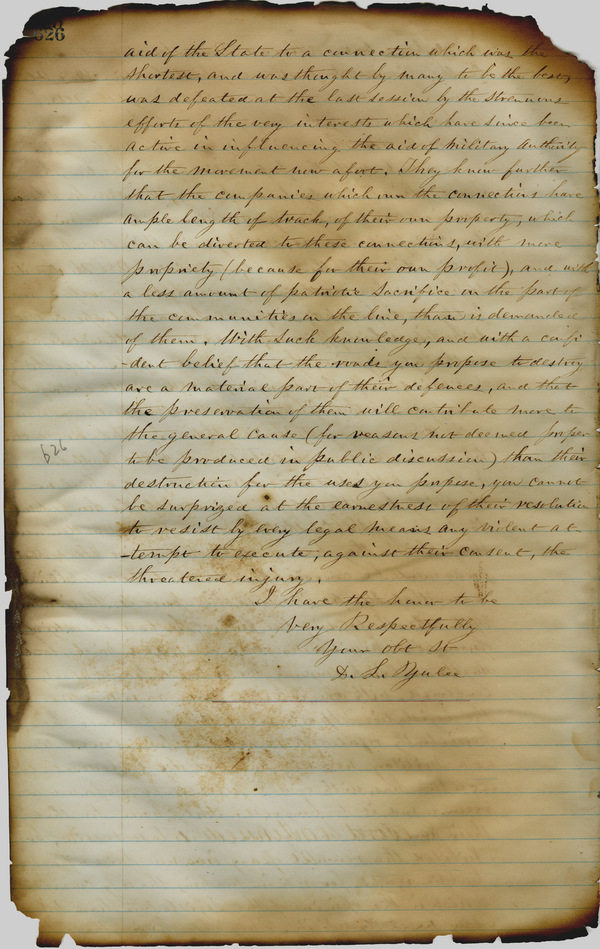 626
aid of the State to a connection which was the
shortest, and was thought by many to be the best,
was defeated at the last session by the strenuous
efforts of the very interests which have since been
active in influencing the aid of Military Authority
for the movement now afoot. They know further
that the companies which own the connections have
ample length of track, of their own property, which
can be diverted to these connections, with more
propriety (because for their own profit), and with
a less amount of patriotic sacrifice on the part of
the communities on the line, than is demanded
of them. With such knowledge, and with a confi
-dent belief that the roads you propose to destroy
are a material part of their defences, and that
the preservation of them will contribute more to
the general cause (for reasons not deemed proper
to be produced in public discussion) than their
destruction for the uses you propose, you cannot
be surprized at the earnestness of their resolution
to resist by every legal means any violent at
-tempt to execute, against their consent, the
threatened injury.
I have the honor to be
Very Respectfully
Your obt St
D. L. Yulee
626